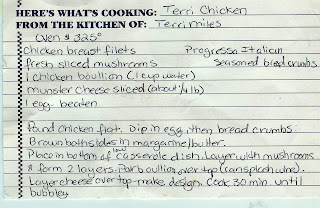 HERE'S WHAT'S COOKING: Terri Chicken
FROM THE KITCHEN OF: Terri miles
Oven @ 325°
Chicken breast filets Progresso Italian
fresh sliced mushrooms Seasoned bread crumbs
1 chicken boullion (1 cup water)
munster cheese sliced (about 1/4 lb)
1 egg beaten
Pound chicken flat. Dip in egg, then bread crumbs.
Brown both sides in margarine/butter.
Place in bottom of casserole dish. Layer with mushrooms
& form 2 layers. Pour boullion over top (can splash wine).
Layer cheese over top - make design. Cook 30 min. until
bubbley